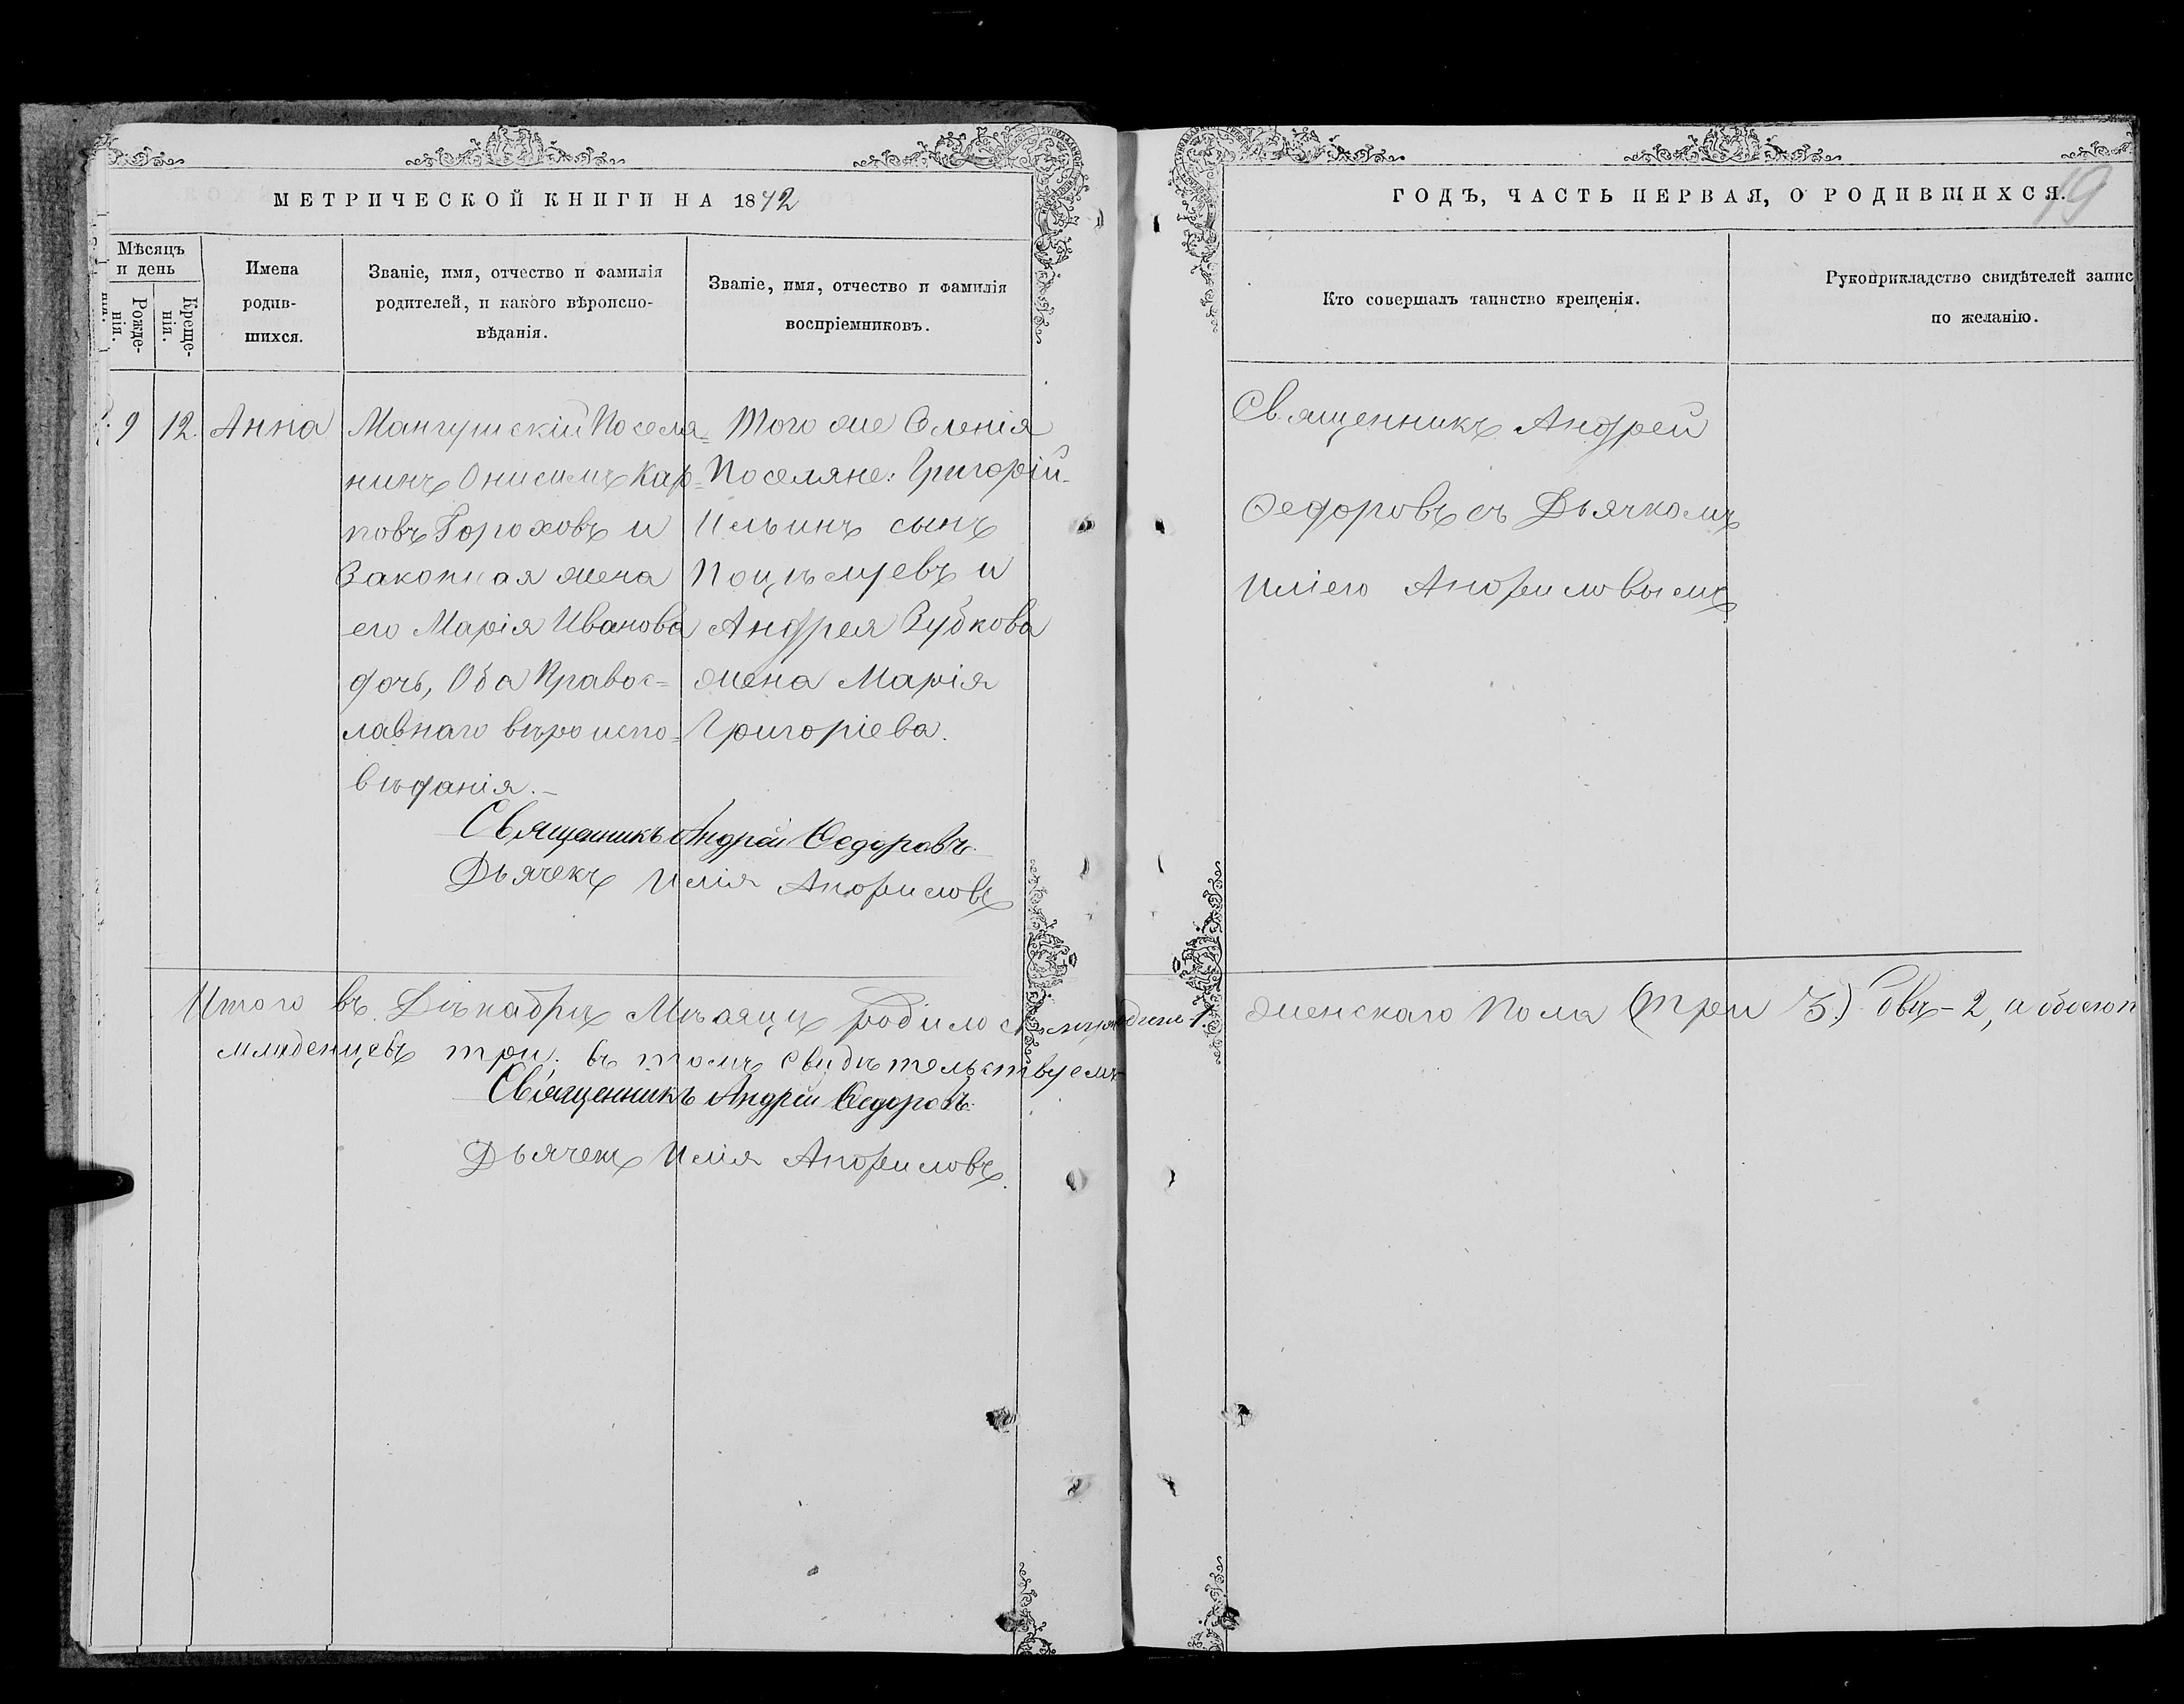 МЕТРИЧЕСКОЙ КНИГИ НА 1872
Мѣсяцъ и день
Рожденія.
Крещенія.
Имена родившихся.
Званіе, имя, отчество и фамилія
родителей, и какого вѣроиспо-
вѣданія.
Званіе, имя, отчество и фамилія
воспріемниковъ.
9
12.
Анна
Мангушскій Поселя=
нинъ Онисимъ Кар=
повъ Гороховъ и
Законная жена
его Марія Иванова
дочь, Оба Правос=
лавнаго вѣроиспо=
вѣданія.
Того же Селенія
Поселяне: Григорій
Ильинъ сынъ
и
Андрея Зубкова
жена Марія
Григоріева.
Священникъ Андрей Ѳедоровъ
Дьячекъ Илія
Итого въ Дѣкабрѣ Мѣсяцѣ родилось
младенцевъ три. въ томъ свидѣтельствуемъ
Священникъ Андрей Ѳедоровъ.
Дьячекъ Илія
ГОДЪ, ЧАСТЬ ПЕРВАЯ, О РОДИВШИХСЯ.
19
Кто совершалъ таинство крещенія.
Рукоприкладство свидѣтелей запис
по желанію.
Священникъ Андрей
Ѳедоровъ съ Дьячкомъ
Иліею
женскаго Пола (три 3.) двѣ-2, а обоего п